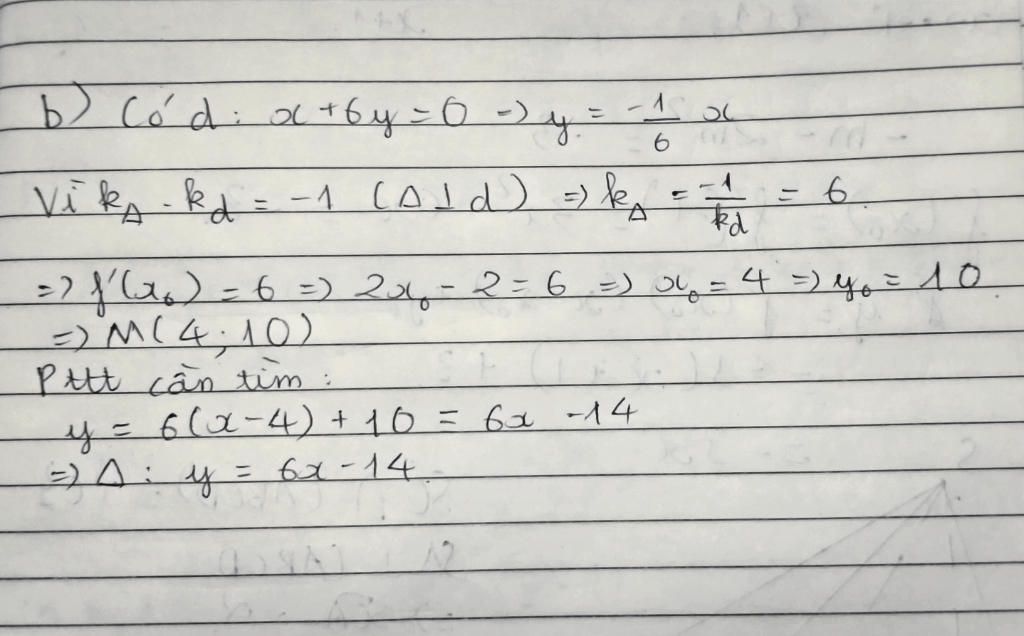 b) Có d: x + 6y = 0 => y = -1/6 x
Vì k_Δ . k_d = -1 (Δ ⊥ d) => k_Δ = -1/k_d = 6.
=> f'(x₀) = 6 => 2x₀ - 2 = 6 => x₀ = 4 => y₀ = 10
=> M(4; 10)
Pttt cần tìm:
y = 6(x-4) + 10 = 6x - 14
=> Δ: y = 6x - 14.